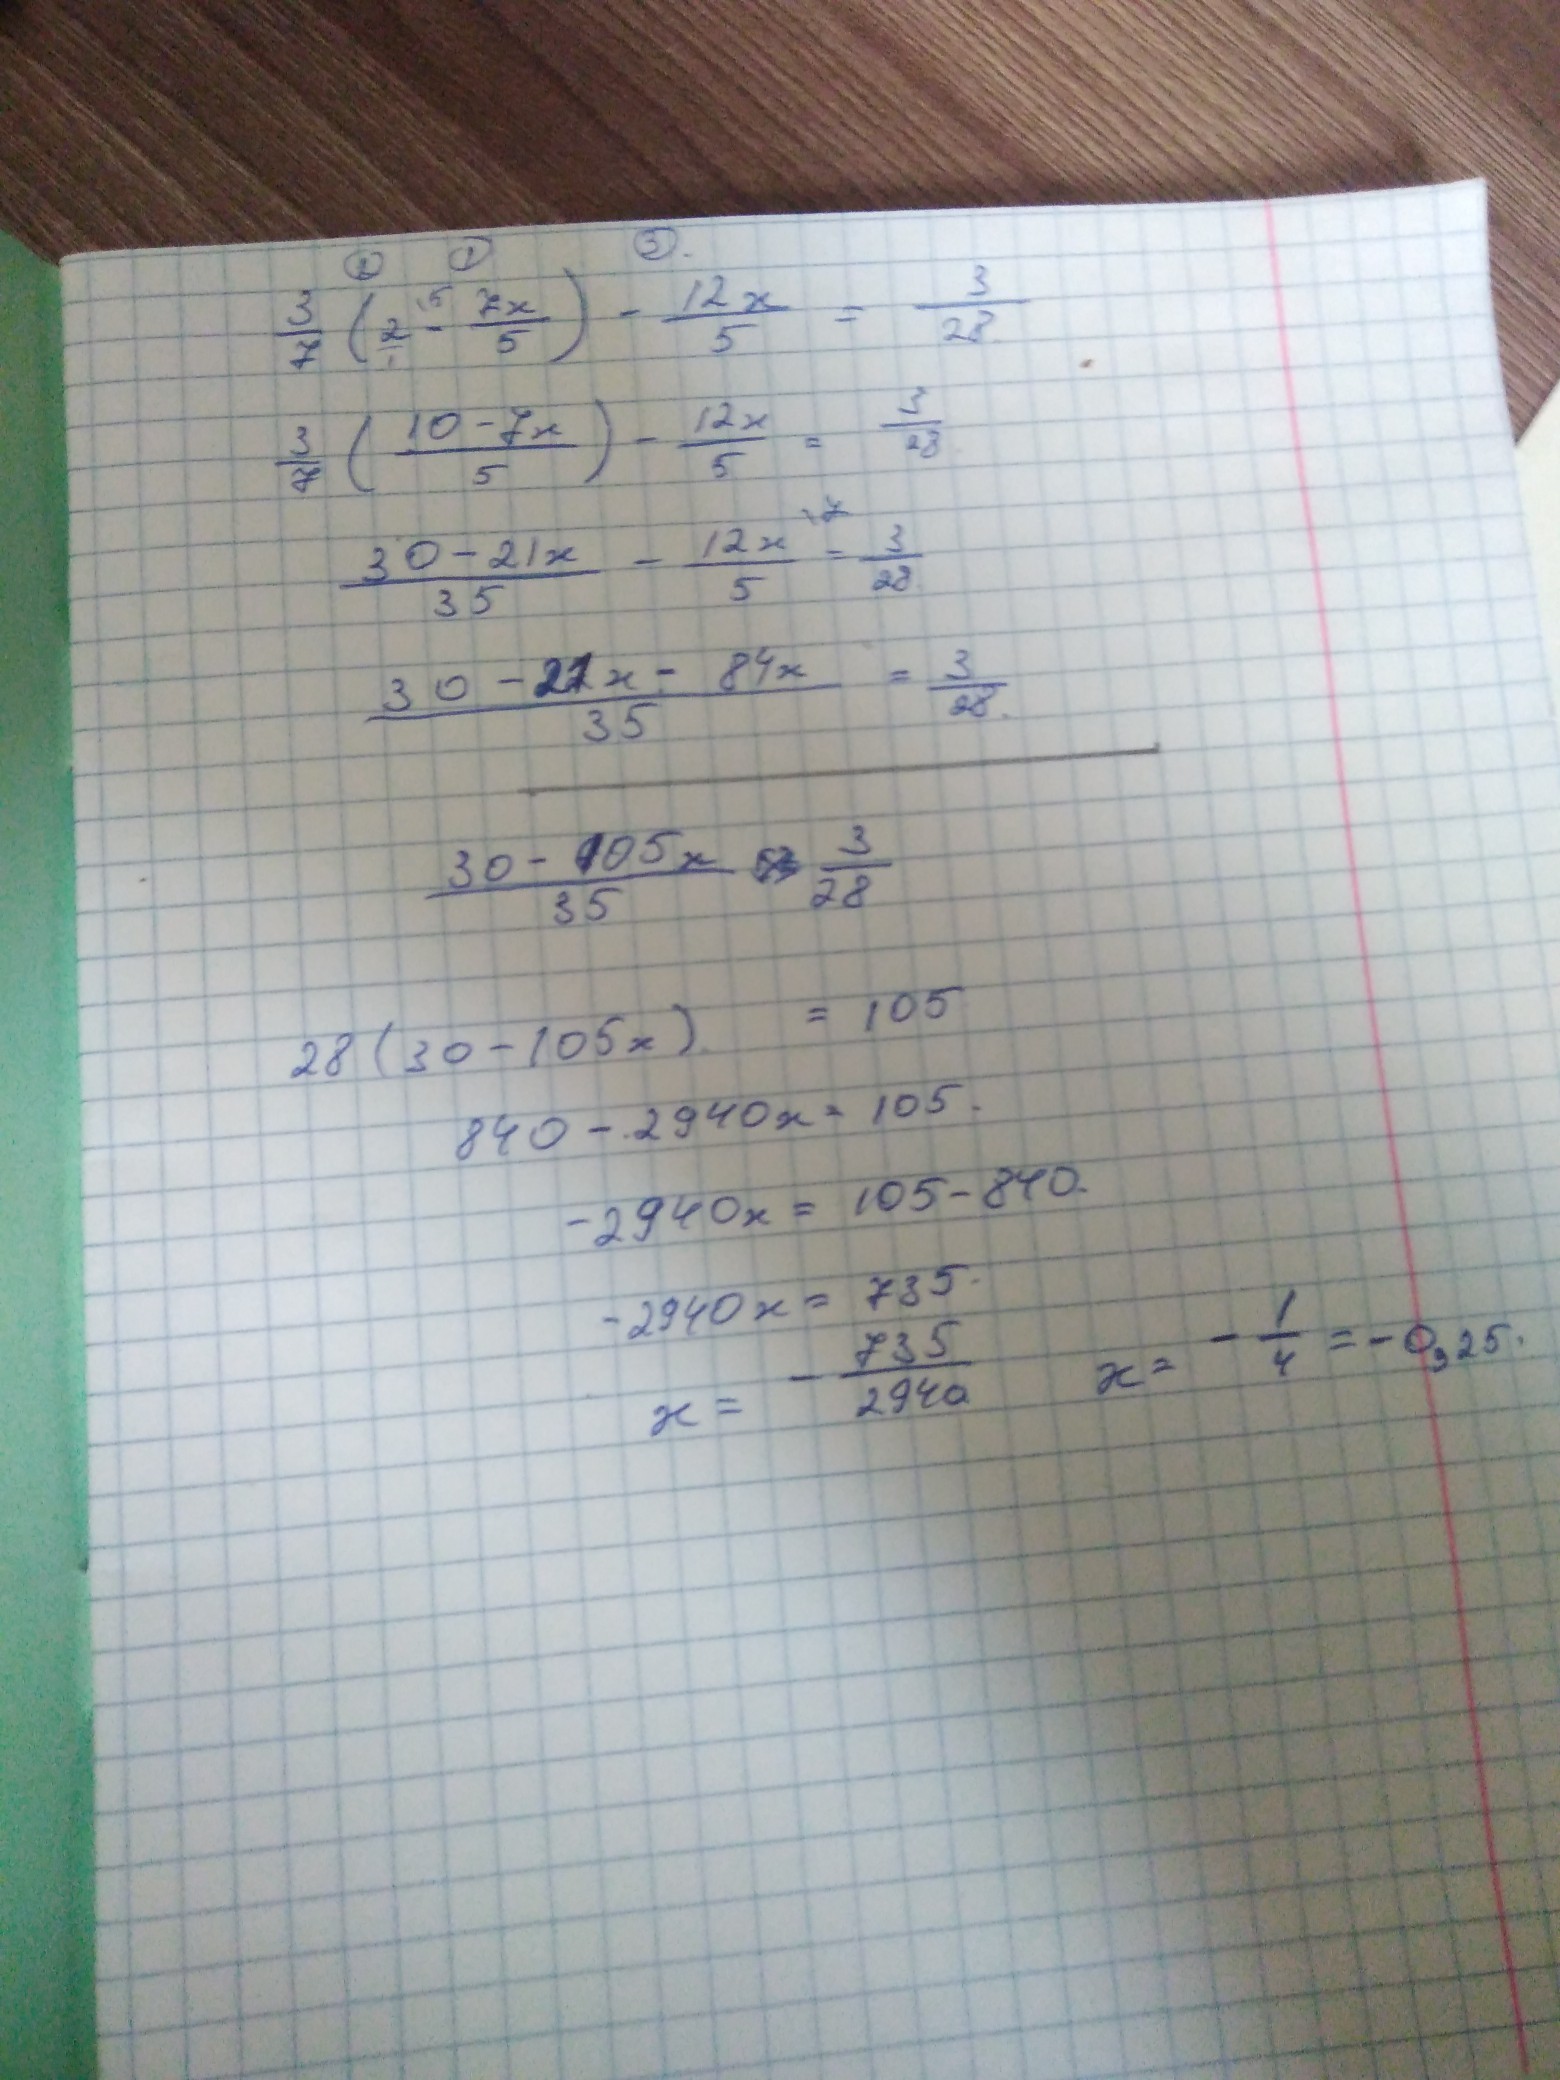 ② ① ③.
3/7 (2/1 \5 - 7x/5) - 12x/5 = 3/28
3/7 (10-7x/5) - 12x/5 = 3/28
30-21x/35 - 12x/5 \7 = 3/28
30-21x-84x/35 = 3/28.
30-105x/35 3/28
28(30-105x). = 105
840-2940x=105.
-2940x=105-840.
-2940x=735.
x= -735/2940 x= -1/4 =-0,25.